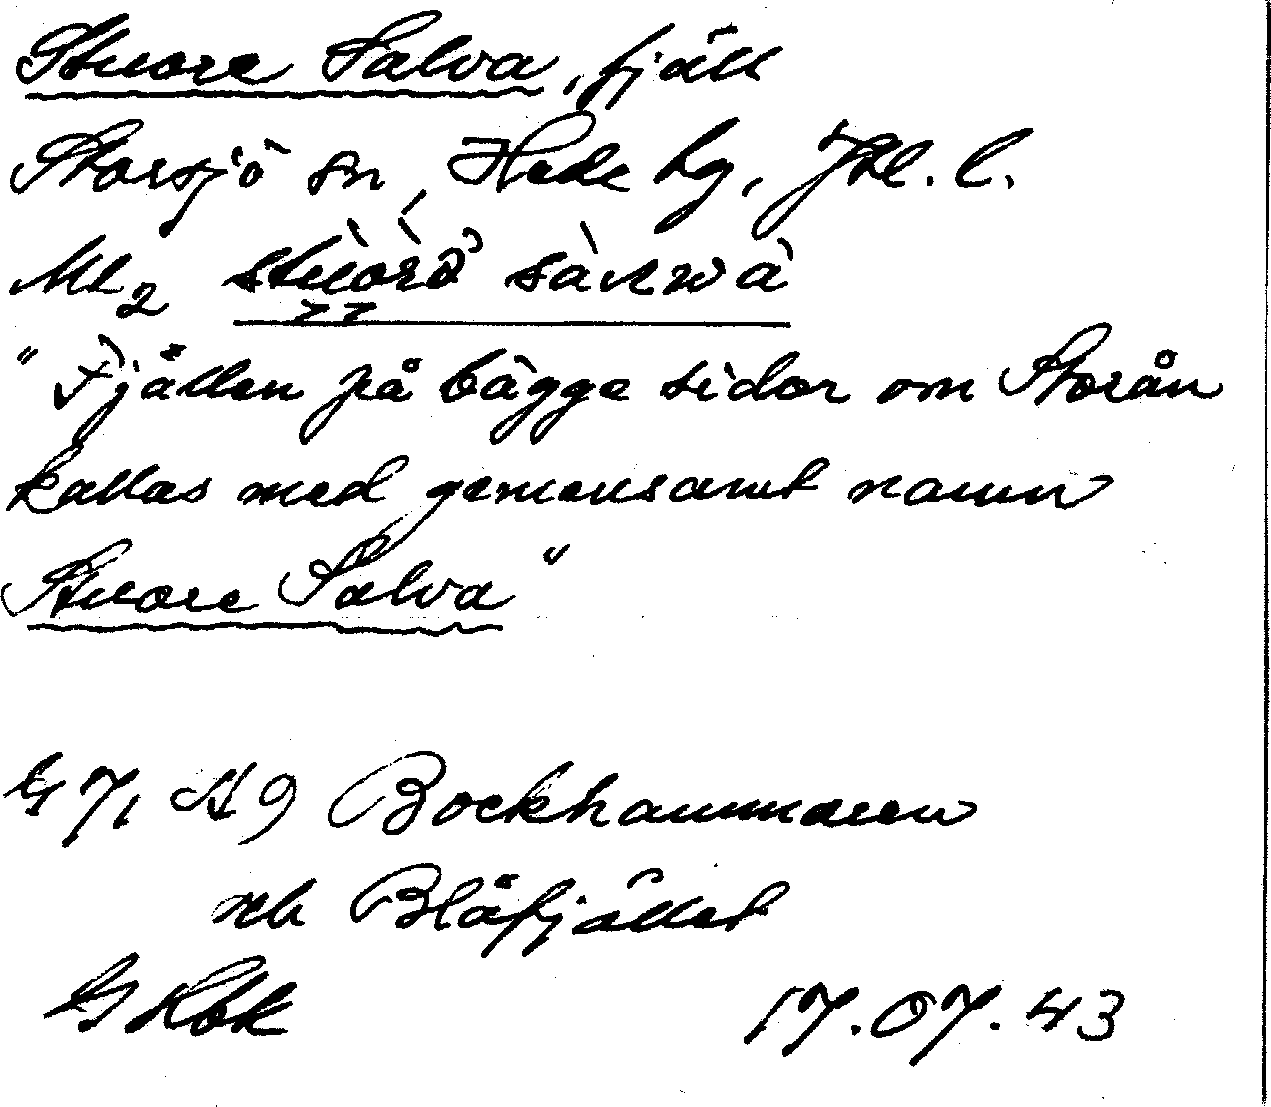 Stuore Salva, fjäll
Storsjö sn, Hede hg, Jtl. l.
"Fjällen på bägge sidor om Storån
kallas med gemensamt namn
Stuore Salva"
Bockhammaren
och Blåfjället
17.07.43